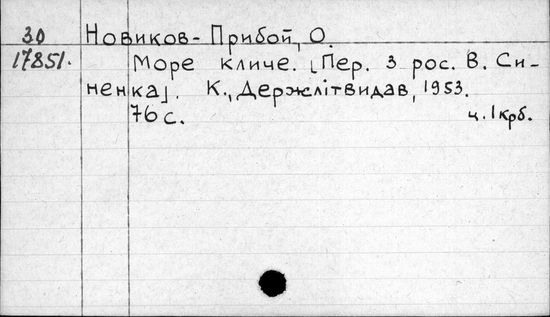 30 Новиков-Прибой, О.
17851. Море кличе. [Пер. з рос. В. Си-
ненка]. К., Держлітвидав, 1953.
76 с. ц. 1 крб.